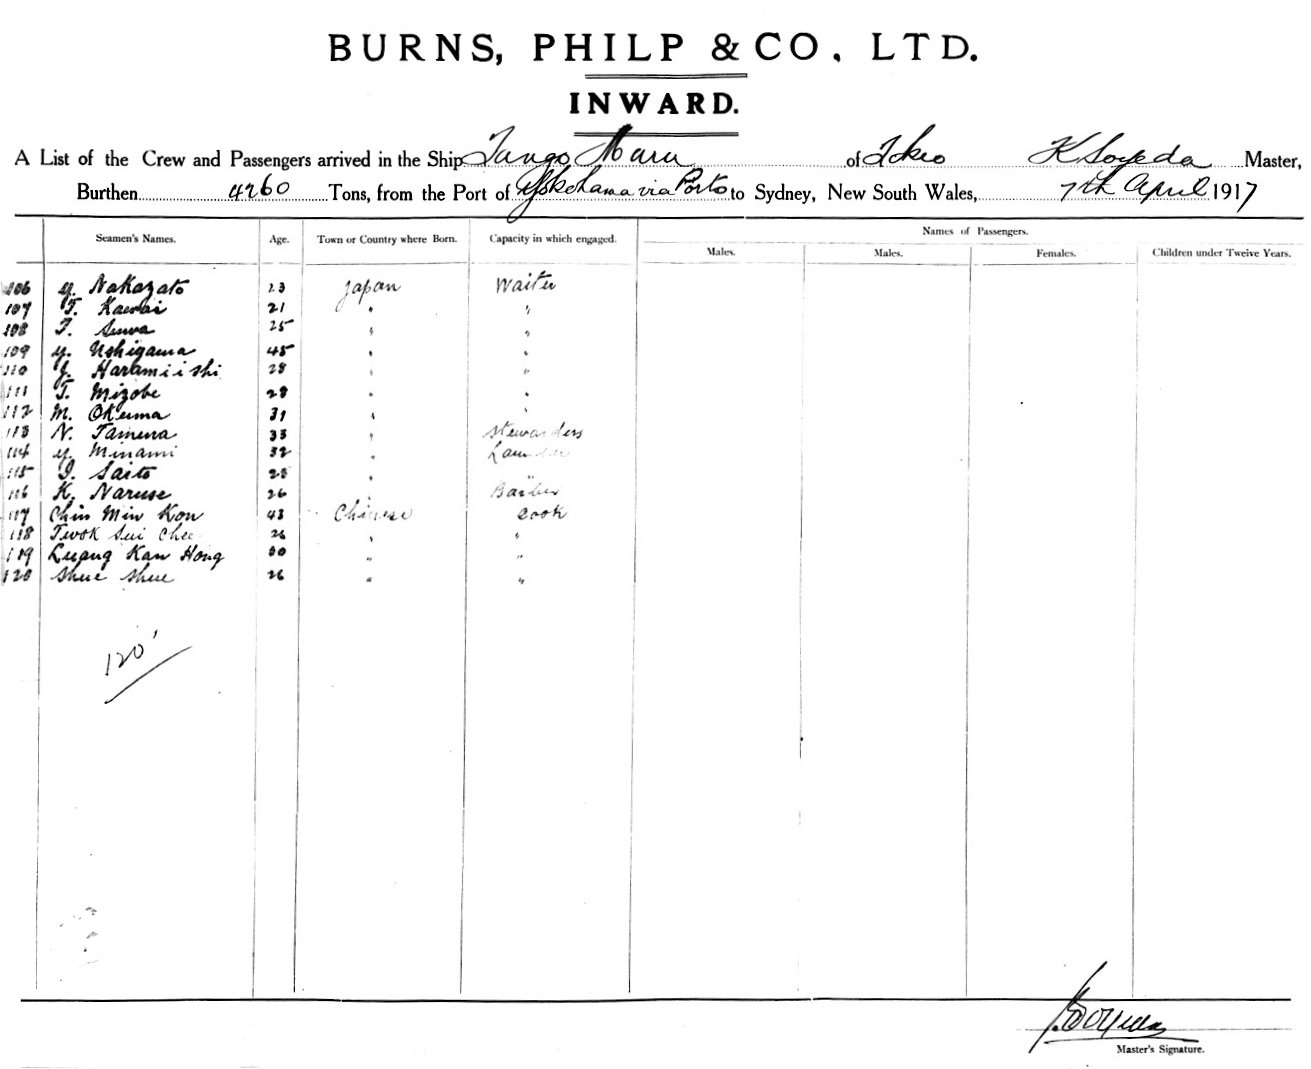 BURNS, PHILP & CO. LTD.
INWARD.
A List of the Crew and Passengers arrived in the Ship Tango Maru of Tokio K Soyeda Master,
Burthen 4260 Tons, from the Port of Yokohama via Ports to Sydney, New South Wales, 7th April 1917
Names of Passengers.
Seamen's Names. Age. Town or Country where Born. Capacity in which engaged. Males. Males. Females. Children under Twelve Years.
106 Y. Nakazato 23 Japan Waiter
107 T. Kawai 21 " "
108 T. Suwa 25 " "
109 Y. Ushigama 45 " "
110 J. Haramiishi 28 " "
111 T. Mizobe 28 " "
112 M. Okuma 31 " "
113 N. Tamura 33 " Stewardess
114 Y. Minami 32 "
115 I. Saito 28 " "
116 K. Naruse 26 " Barber
117 Chin Min Kon 43 Chinese Cook
118 Sui Chee 26 " "
119 Luang Kan Hong 30 " "
120 Shue Shue 26 " "
120
K. Soyeda
Master's Signature.